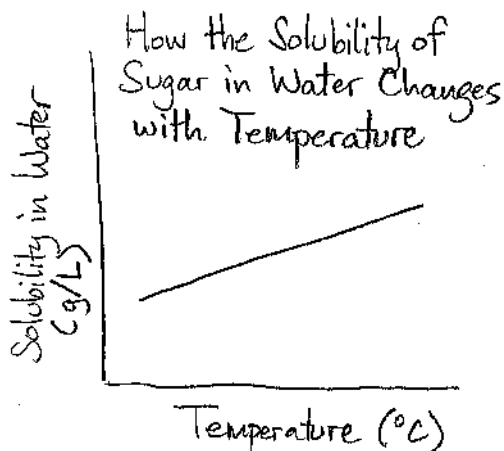 How the Solubility of
Sugar in Water Changes
with Temperature
Solubility in Water
(g/L)
Temperature (°C)